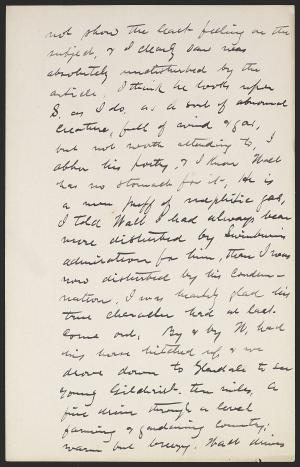 not show the least feeling on the
subject, & I clearly saw was
absolutely undisturbed by the
article. I think he looks upon
S. as I do, as a sort of abnormal
creature, full of wind & gas,
but not worth attending to, I
abhor his poetry, & I know Walt
has no stomach for it. He is
a mere puff of mephitic gas,
I told Walt I had always been
more disturbed by Swinburns
admiration for him, than I was
now disturbed by his condem-
nation, I was heartily glad his
true character had at last
come out. By & by W. had
his horse hitched up & we
drove down to Glendale to see
young Gilchrist, ten miles, a
fine drive through a level
farming & gardening country;
warm but breezy. Walt drives